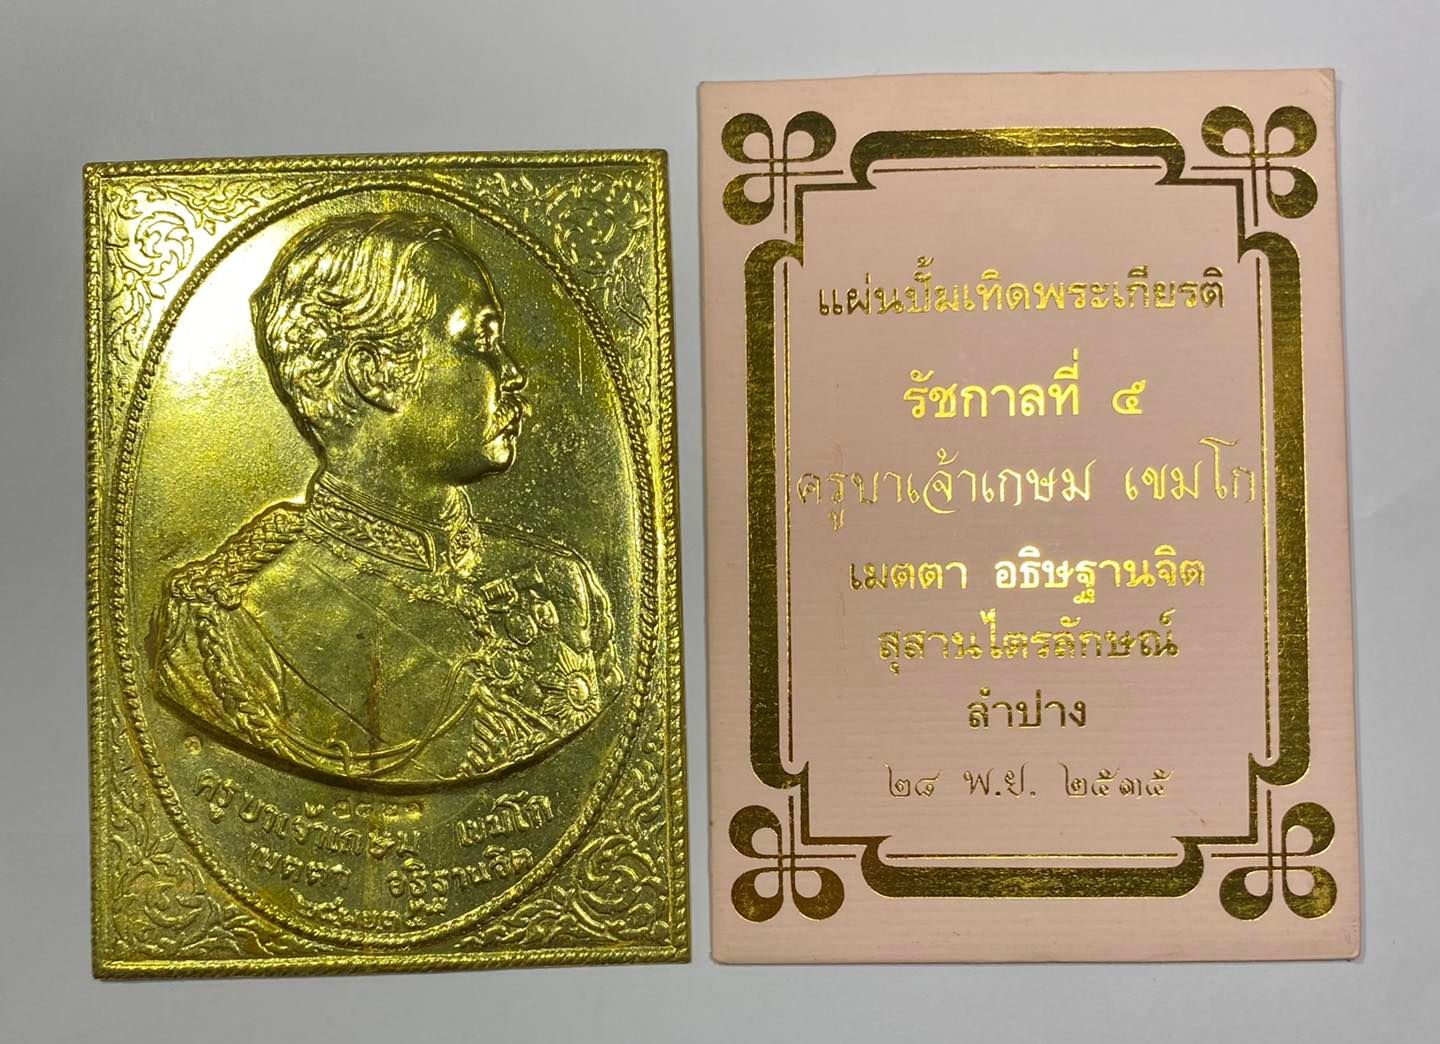 ครูบาเจ้าเกษม เขมโก
เมตตา อธิฐานจิต
แผ่นปั้มเทิดพระเกียรติ
รัชกาลที่ ๕
ครูบาเจ้าเกษม เขมโก
เมตตา อธิษฐานจิต
สุสานไตรลักษณ์
ลำปาง
๒๘ พ.ย. ๒๕๓๕